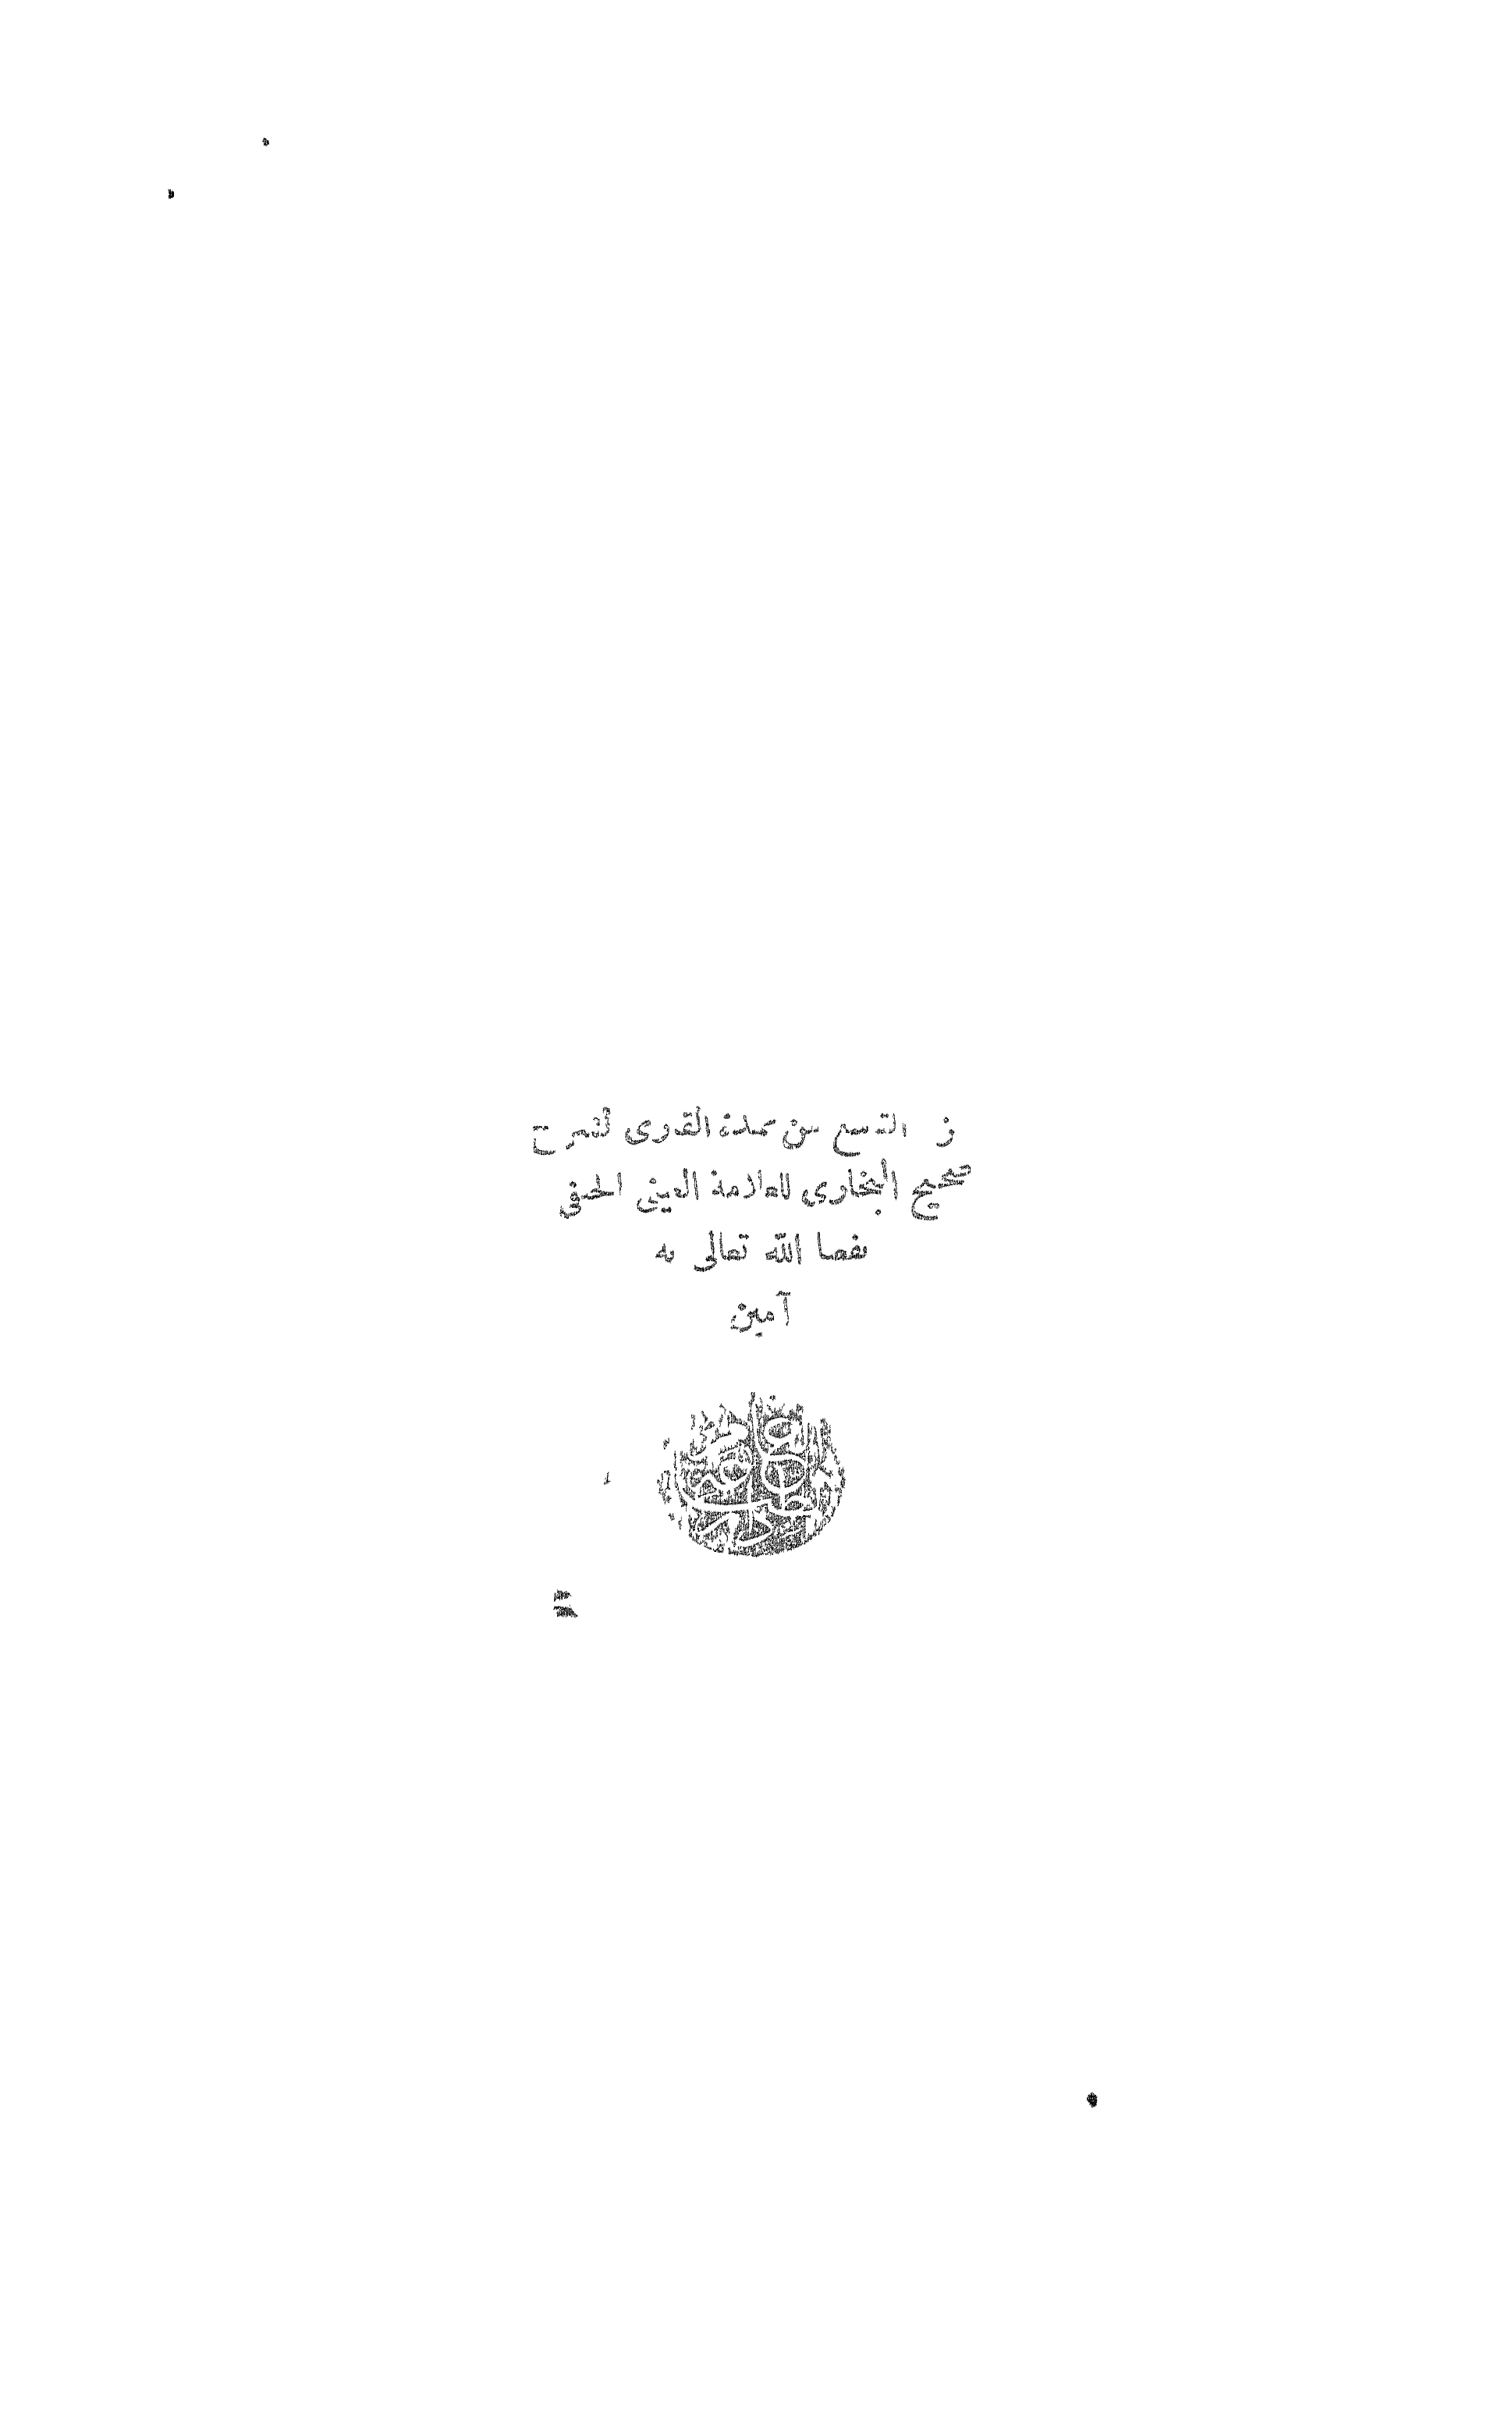 التاسع من عمدة القارى لشرح
صحيح البخارى للعلامة العينى الحنفى
نفعنا الله تعالى به
آمين